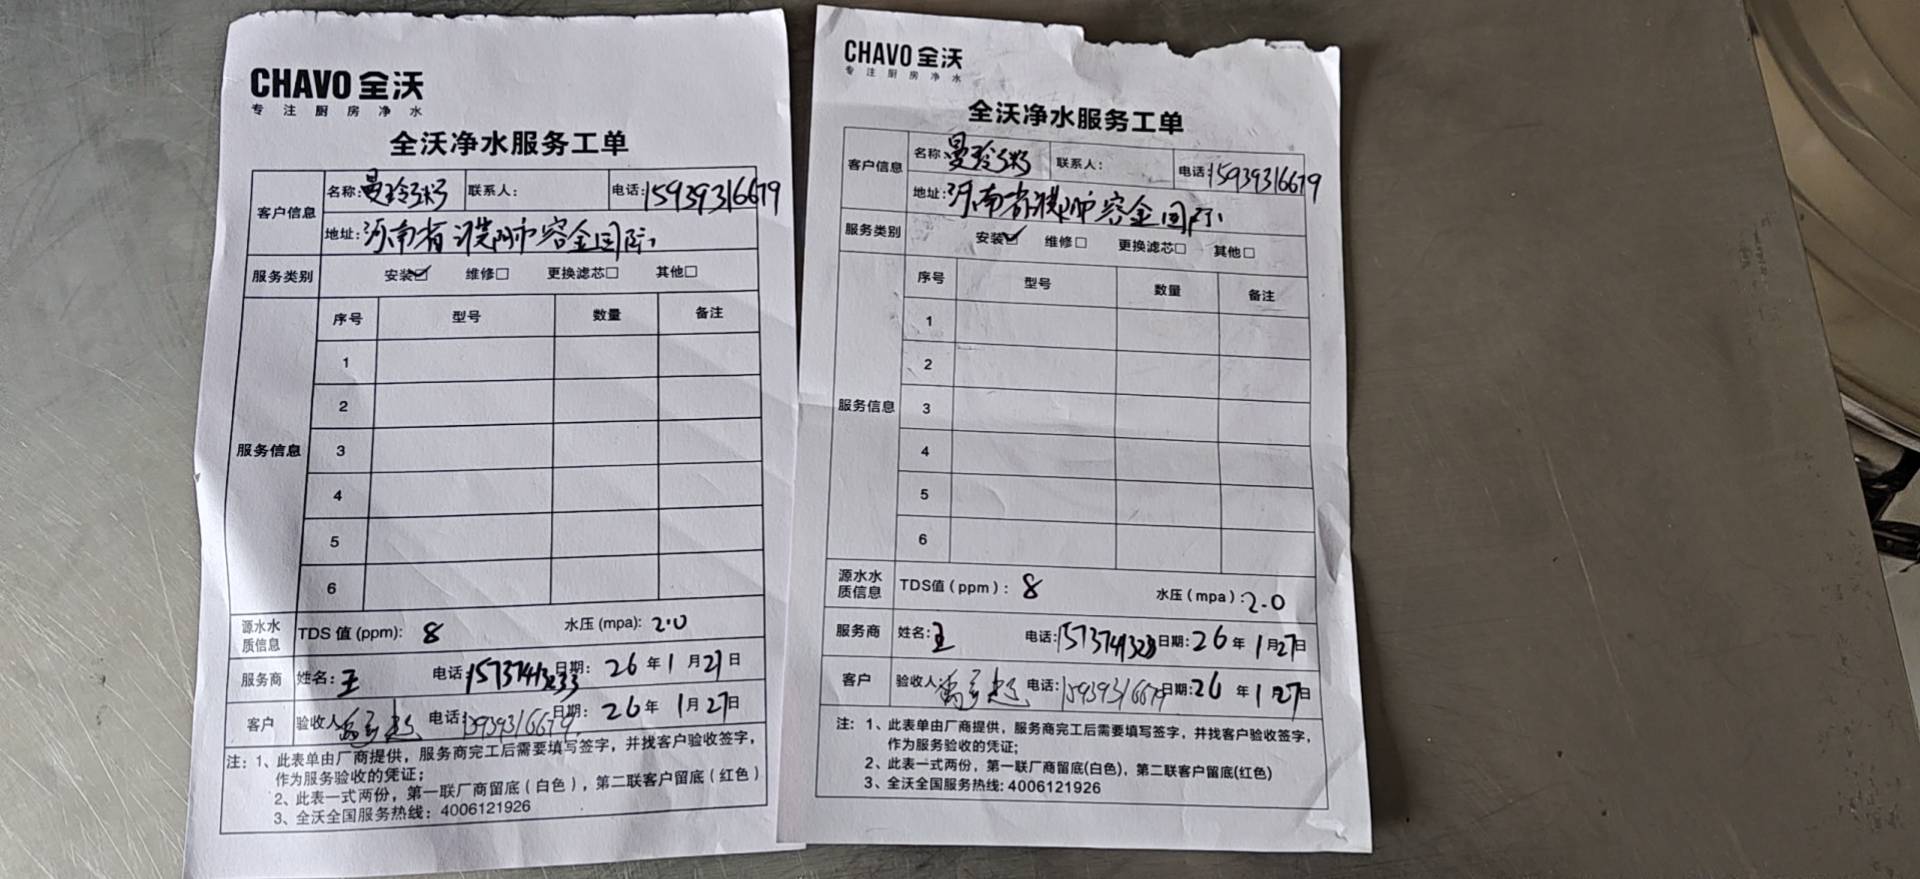 CHAVO 全沃
专注厨房净水
全沃净水服务工单
客户信息
名称:曼玲粥
联系人:
电话:15939316679
地址:河南省濮阳市容金国际
服务类别
安装☑ 维修□ 更换滤芯□ 其他□
服务信息
序号 型号 数量 备注
1
2
3
4
5
6
源水水质信息
TDS 值 (ppm): 8 水压 (mpa): 2.0
服务商 姓名:王 电话: 日期: 26 年 1 月 27 日
客户 验收人 电话:15939316679 日期: 26 年 1 月 27 日
注: 1、此表单由厂商提供，服务商完工后需要填写签字，并找客户验收签字，
作为服务验收的凭证;
2、此表一式两份，第一联厂商留底（白色），第二联客户留底（红色）
3、全沃全国服务热线: 4006121926
CHAVO 全沃
专注厨房净水
全沃净水服务工单
客户信息
名称:曼玲粥
联系人:
电话:15939316679
地址:河南省濮阳市容金国际
服务类别
安装☑ 维修□ 更换滤芯□ 其他□
服务信息
序号 型号 数量 备注
1
2
3
4
5
6
源水水质信息
TDS值(ppm): 8 水压(mpa):2.0
服务商 姓名:王 电话: 日期:26 年 1 月 27 日
客户 验收人 电话:15939316679 日期:26 年 1 月 27 日
注: 1、此表单由厂商提供，服务商完工后需要填写签字，并找客户验收签字，
作为服务验收的凭证;
2、此表一式两份，第一联厂商留底(白色)，第二联客户留底(红色)
3、全沃全国服务热线: 4006121926